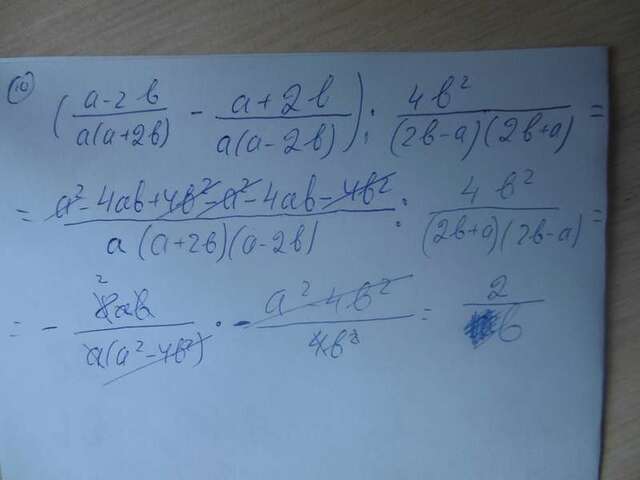 10
(a-2b/a(a+2b) - a+2b/a(a-2b)) : 4b²/(2b-a)(2b+a) =
= a²-4ab+4b²-a²-4ab-4b²/a(a+2b)(a-2b) : 4b²/(2b+a)(2b-a) =
= - 8ab/a(a²-4b²) · - a²-4b²/4b² = 2/b